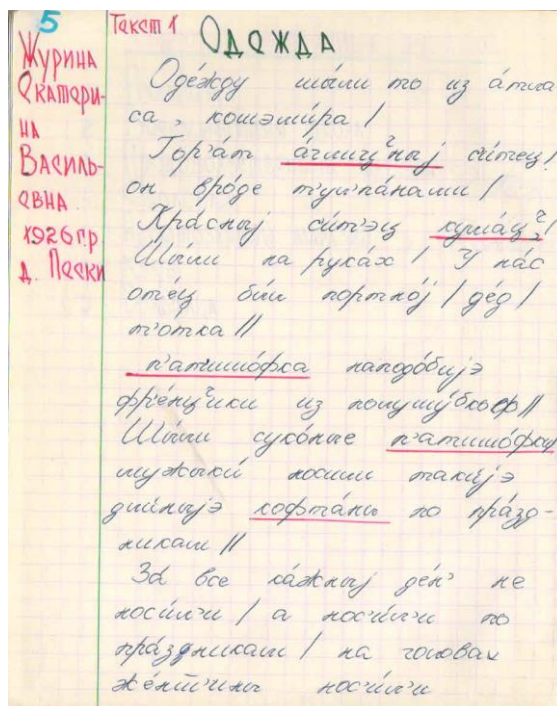 5
Текст 1
ОДЕЖДА
ЖУРИНА
ЕКАТЕРИ-
НА
ВАСИЛЬ-
ЕВНА
1926 г.р.
д. Пески
Оде́жду шы́ли то из а́тла
са, кошэми́ра /
Гор'а́т агли́цᶻный си́тец /
он вро́де т'ул'па́нами /
Кра́сныj си́т'эц кума́цᶻ /
Шы́ли на рука́х / У на́с
оте́ц бы́л портно́j / де́д /
т'о́тка //
п'атшо́фка наподо́биjэ
фре́нцᶻики из полушу́бкоф //
Шы́ли суко́ные п'атшо́фки
мужыки́ носили таки́jэ
дли́ныjэ кофта́ны по пра́зд-
никам //
За́ все ка́жныj де́н' не
носи́л'и / а нос'и́л'и по
пра́здникам / на головах
же́нш'ины нос'и́л'и